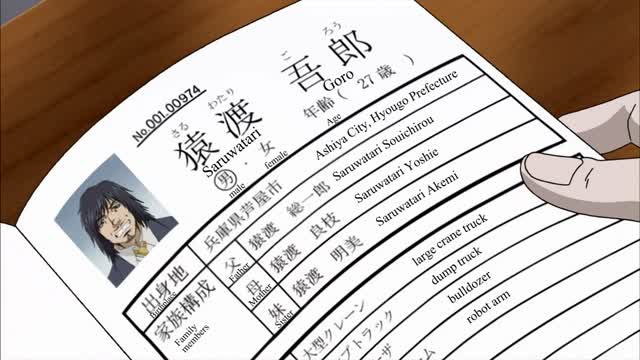 No.001.00974
さる わたり ご ろう
猿渡 吾郎
Saruwatari Goro
男・女 年齢(27歳)
male female Age
出身地 兵庫県芦屋市
Birthplace Ashiya City, Hyougo Prefecture
家族構成 父 猿渡 総一郎
Family members Father Saruwatari Souichirou
母 猿渡 良枝
Mother Saruwatari Yoshie
妹 猿渡 明美
Sister Saruwatari Akemi
大型クレーン
large crane truck
プトラック
dump truck
bulldozer
robot arm